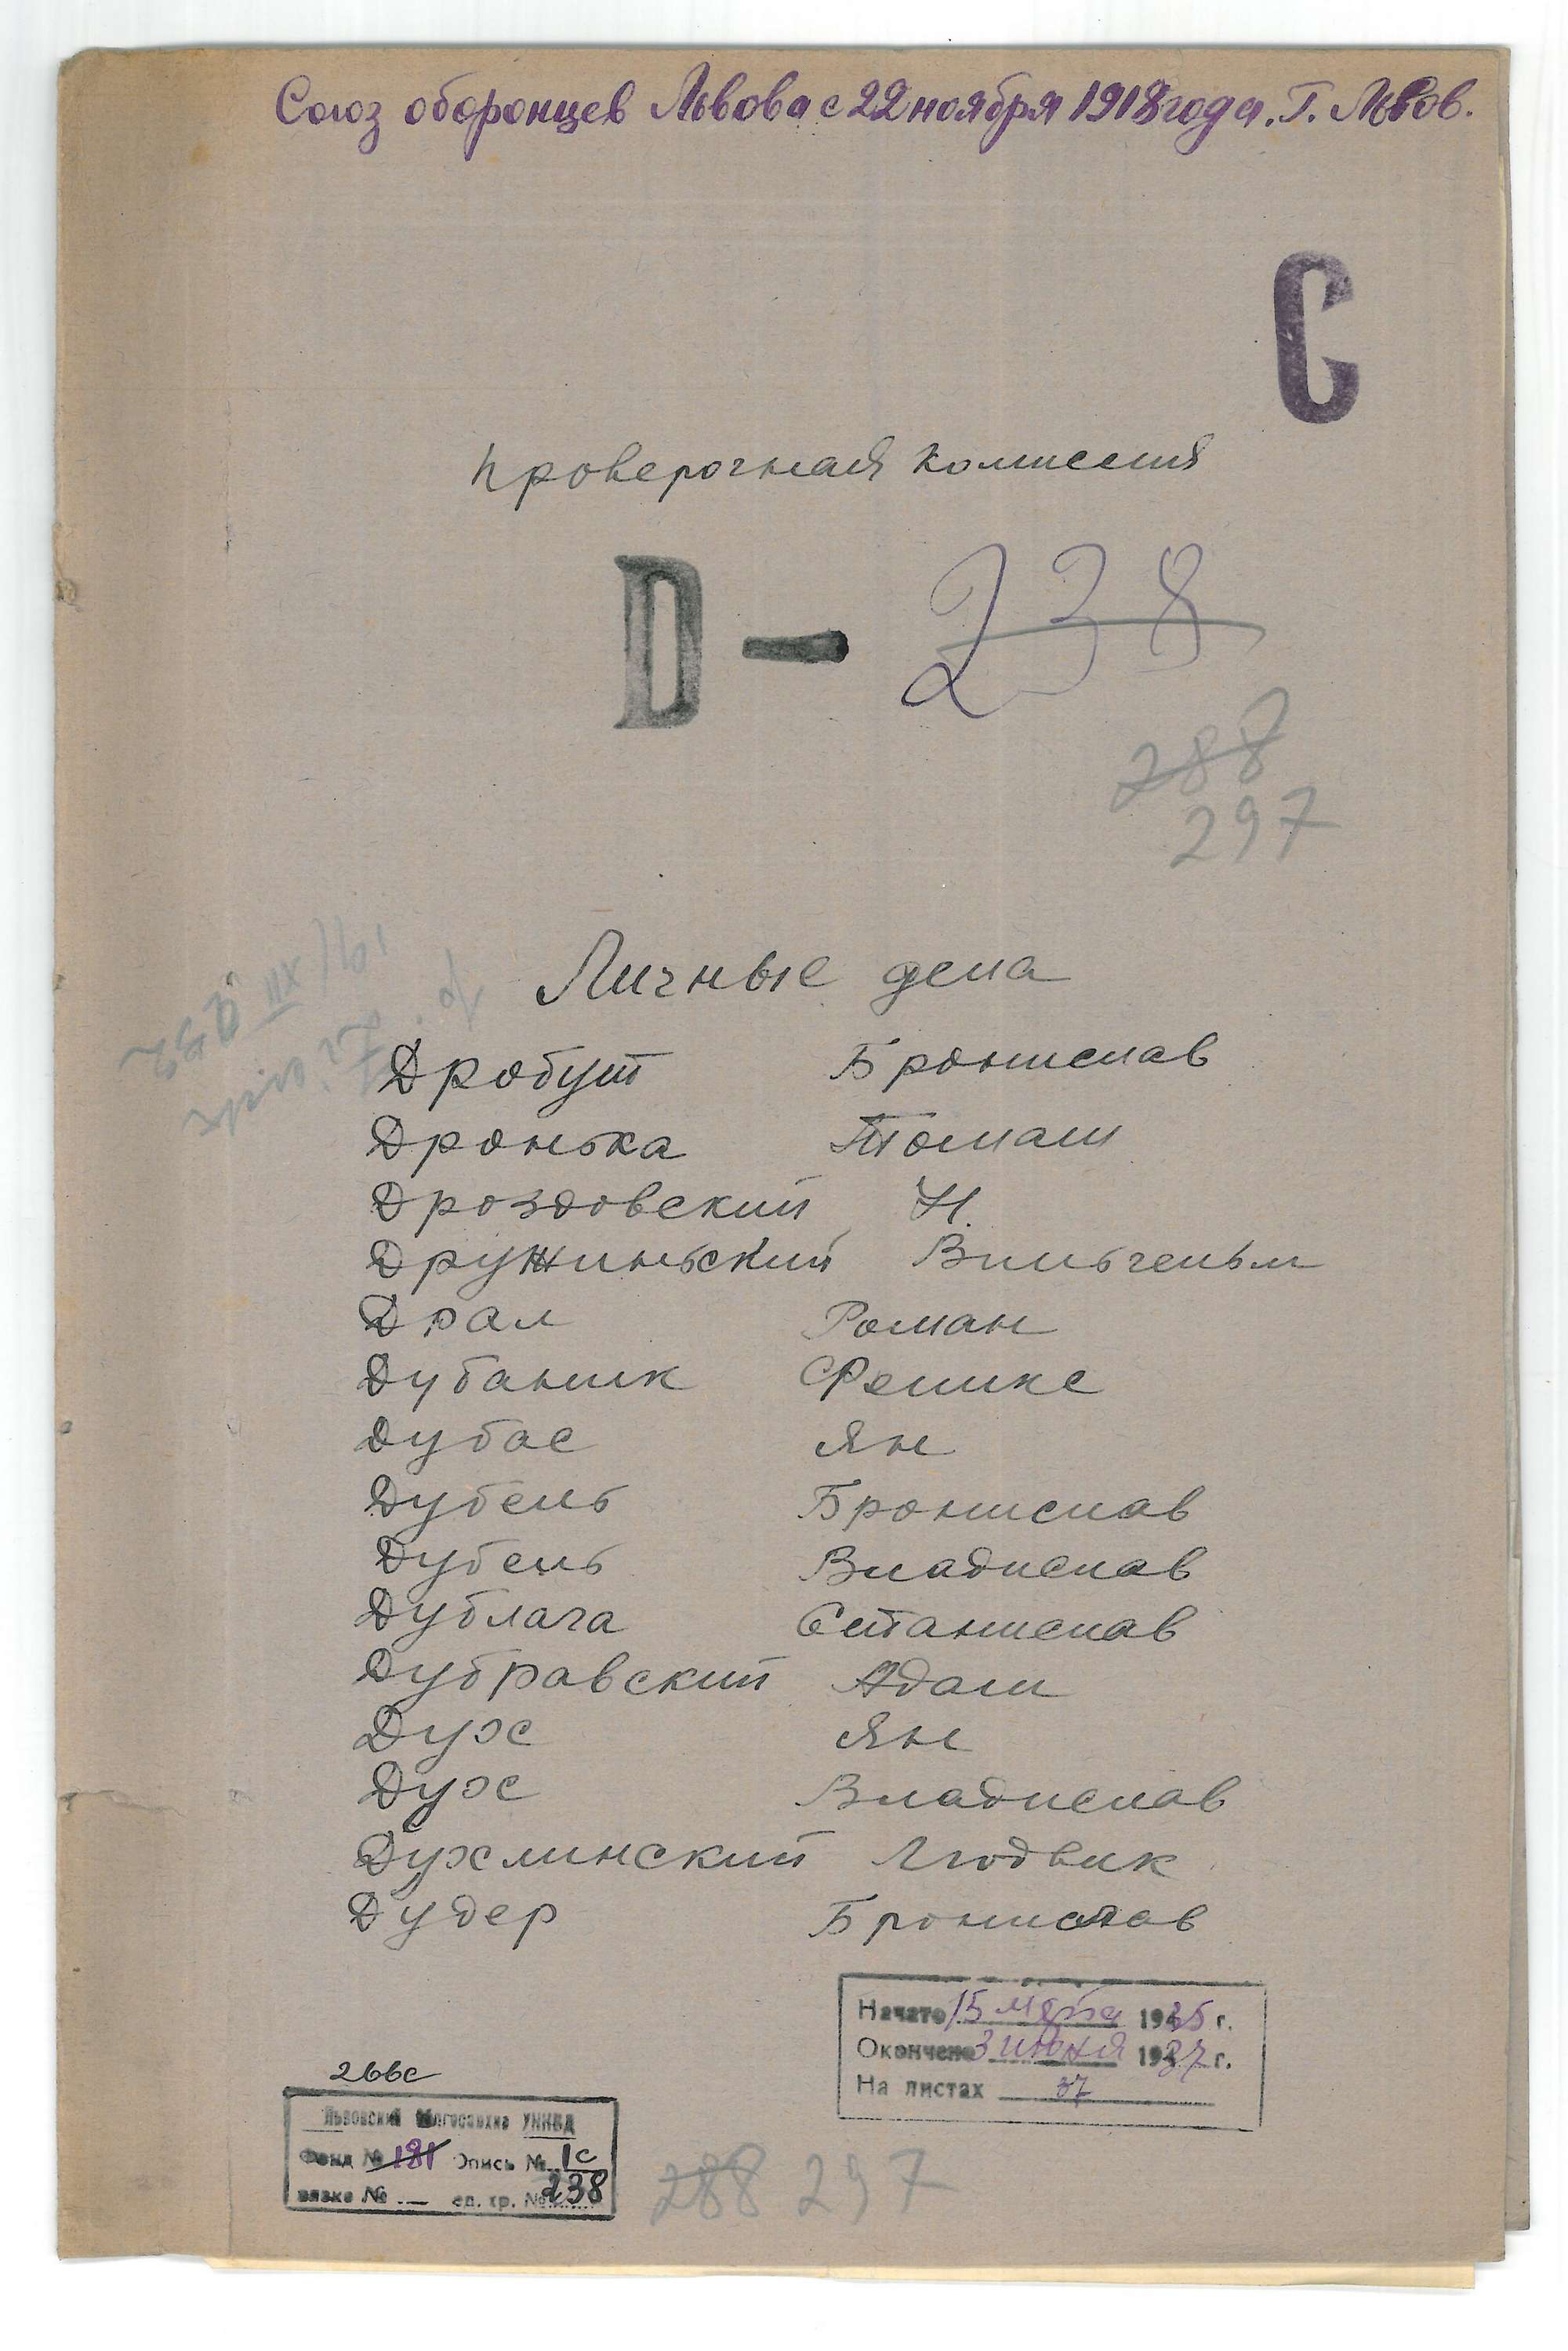 Союз оборонцев Львова с 22 ноября 1918 года. Г. Львов.
С
Проверочная комиссия
D — 238
288
297
Личные дела
Дробут Бронислав
Дронька Томаш
Дроздовский Н.
Дружиньский Вильгельм
Драл Роман
Дубаник Феликс
Дубас Ян
Дубель Бронислав
Дубель Владислав
Дублага Станислав
Дубравский Адам
Дух Ян
Дух Владислав
Духлинский Людвик
Дудер Бронислав
Начато 15 марта 1935 г.
Окончено 3 июня 1937 г.
На листах 37
266с
Львовский Облгосархив УНКВД
Фонд № 181 Опись № 1с
вязка № — ед. хр. № 238
288 297